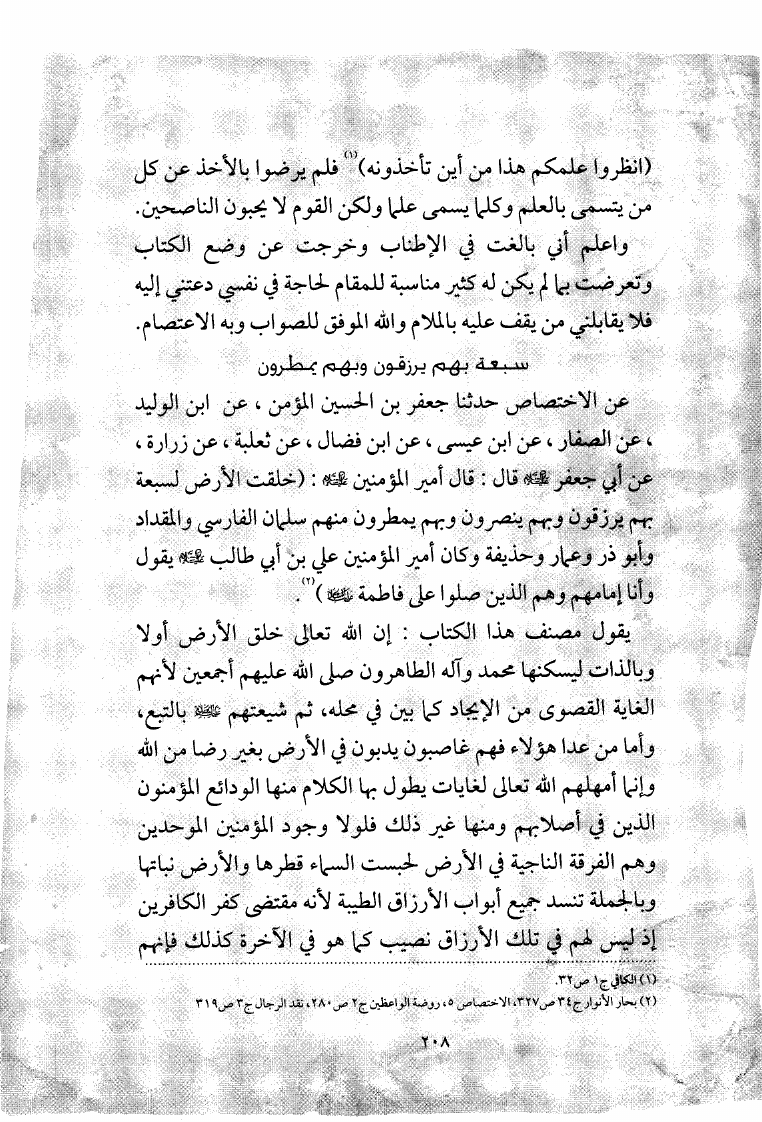 (انظروا علمكم هذا من أين تأخذونه)(١) فلم يرضوا بالأخذ عن كل
من يتسمى بالعلم وكلما يسمى علما ولكن القوم لا يحبون الناصحين.
واعلم أني بالغت في الإطناب وخرجت عن وضع الكتاب
وتعرضت بما لم يكن له كثير مناسبة للمقام لحاجة في نفسي دعتني إليه
فلا يقابلني من يقف عليه بالملام والله الموفق للصواب وبه الاعتصام.
سبعة بهم يرزقون وبهم يمطرون
عن الاختصاص حدثنا جعفر بن الحسين المؤمن ، عن ابن الوليد
، عن الصفار ، عن ابن عيسى ، عن ابن فضال ، عن ثعلبة ، عن زرارة ،
عن أبي جعفر عليه السلام قال : قال أمير المؤمنين عليه السلام : (خلقت الأرض لسبعة
بهم يرزقون وبهم ينصرون وبهم يمطرون منهم سلمان الفارسي والمقداد
وأبو ذر وعمار وحذيفة وكان أمير المؤمنين علي بن أبي طالب عليه السلام يقول
وأنا إمامهم وهم الذين صلوا على فاطمة عليها السلام )(٢).
يقول مصنف هذا الكتاب : إن الله تعالى خلق الأرض أولا
وبالذات ليسكنها محمد وآله الطاهرون صلى الله عليهم أجمعين لأنهم
الغاية القصوى من الإيجاد كما بين في محله، ثم شيعتهم عليهم السلام بالتبع،
وأما من عدا هؤلاء فهم غاصبون يدبون في الأرض بغير رضا من الله
وإنما أمهلهم الله تعالى لغايات يطول بها الكلام منها الودائع المؤمنون
الذين في أصلابهم ومنها غير ذلك فلولا وجود المؤمنين الموحدين
وهم الفرقة الناجية في الأرض لحبست السماء قطرها والأرض نباتها
وبالجملة تنسد جميع أبواب الأرزاق الطيبة لأنه مقتضى كفر الكافرين
إذ ليس لهم في تلك الأرزاق نصيب كما هو في الآخرة كذلك فإنهم
(١) الكافي ج١ ص٣٢.
(٢) بحار الأنوار ج٣٤ ص٣٢٧، الاختصاص ٥، روضة الواعظين ج٢ ص٢٨٠، نقد الرجال ج٣ ص٣١٩
٢٠٨